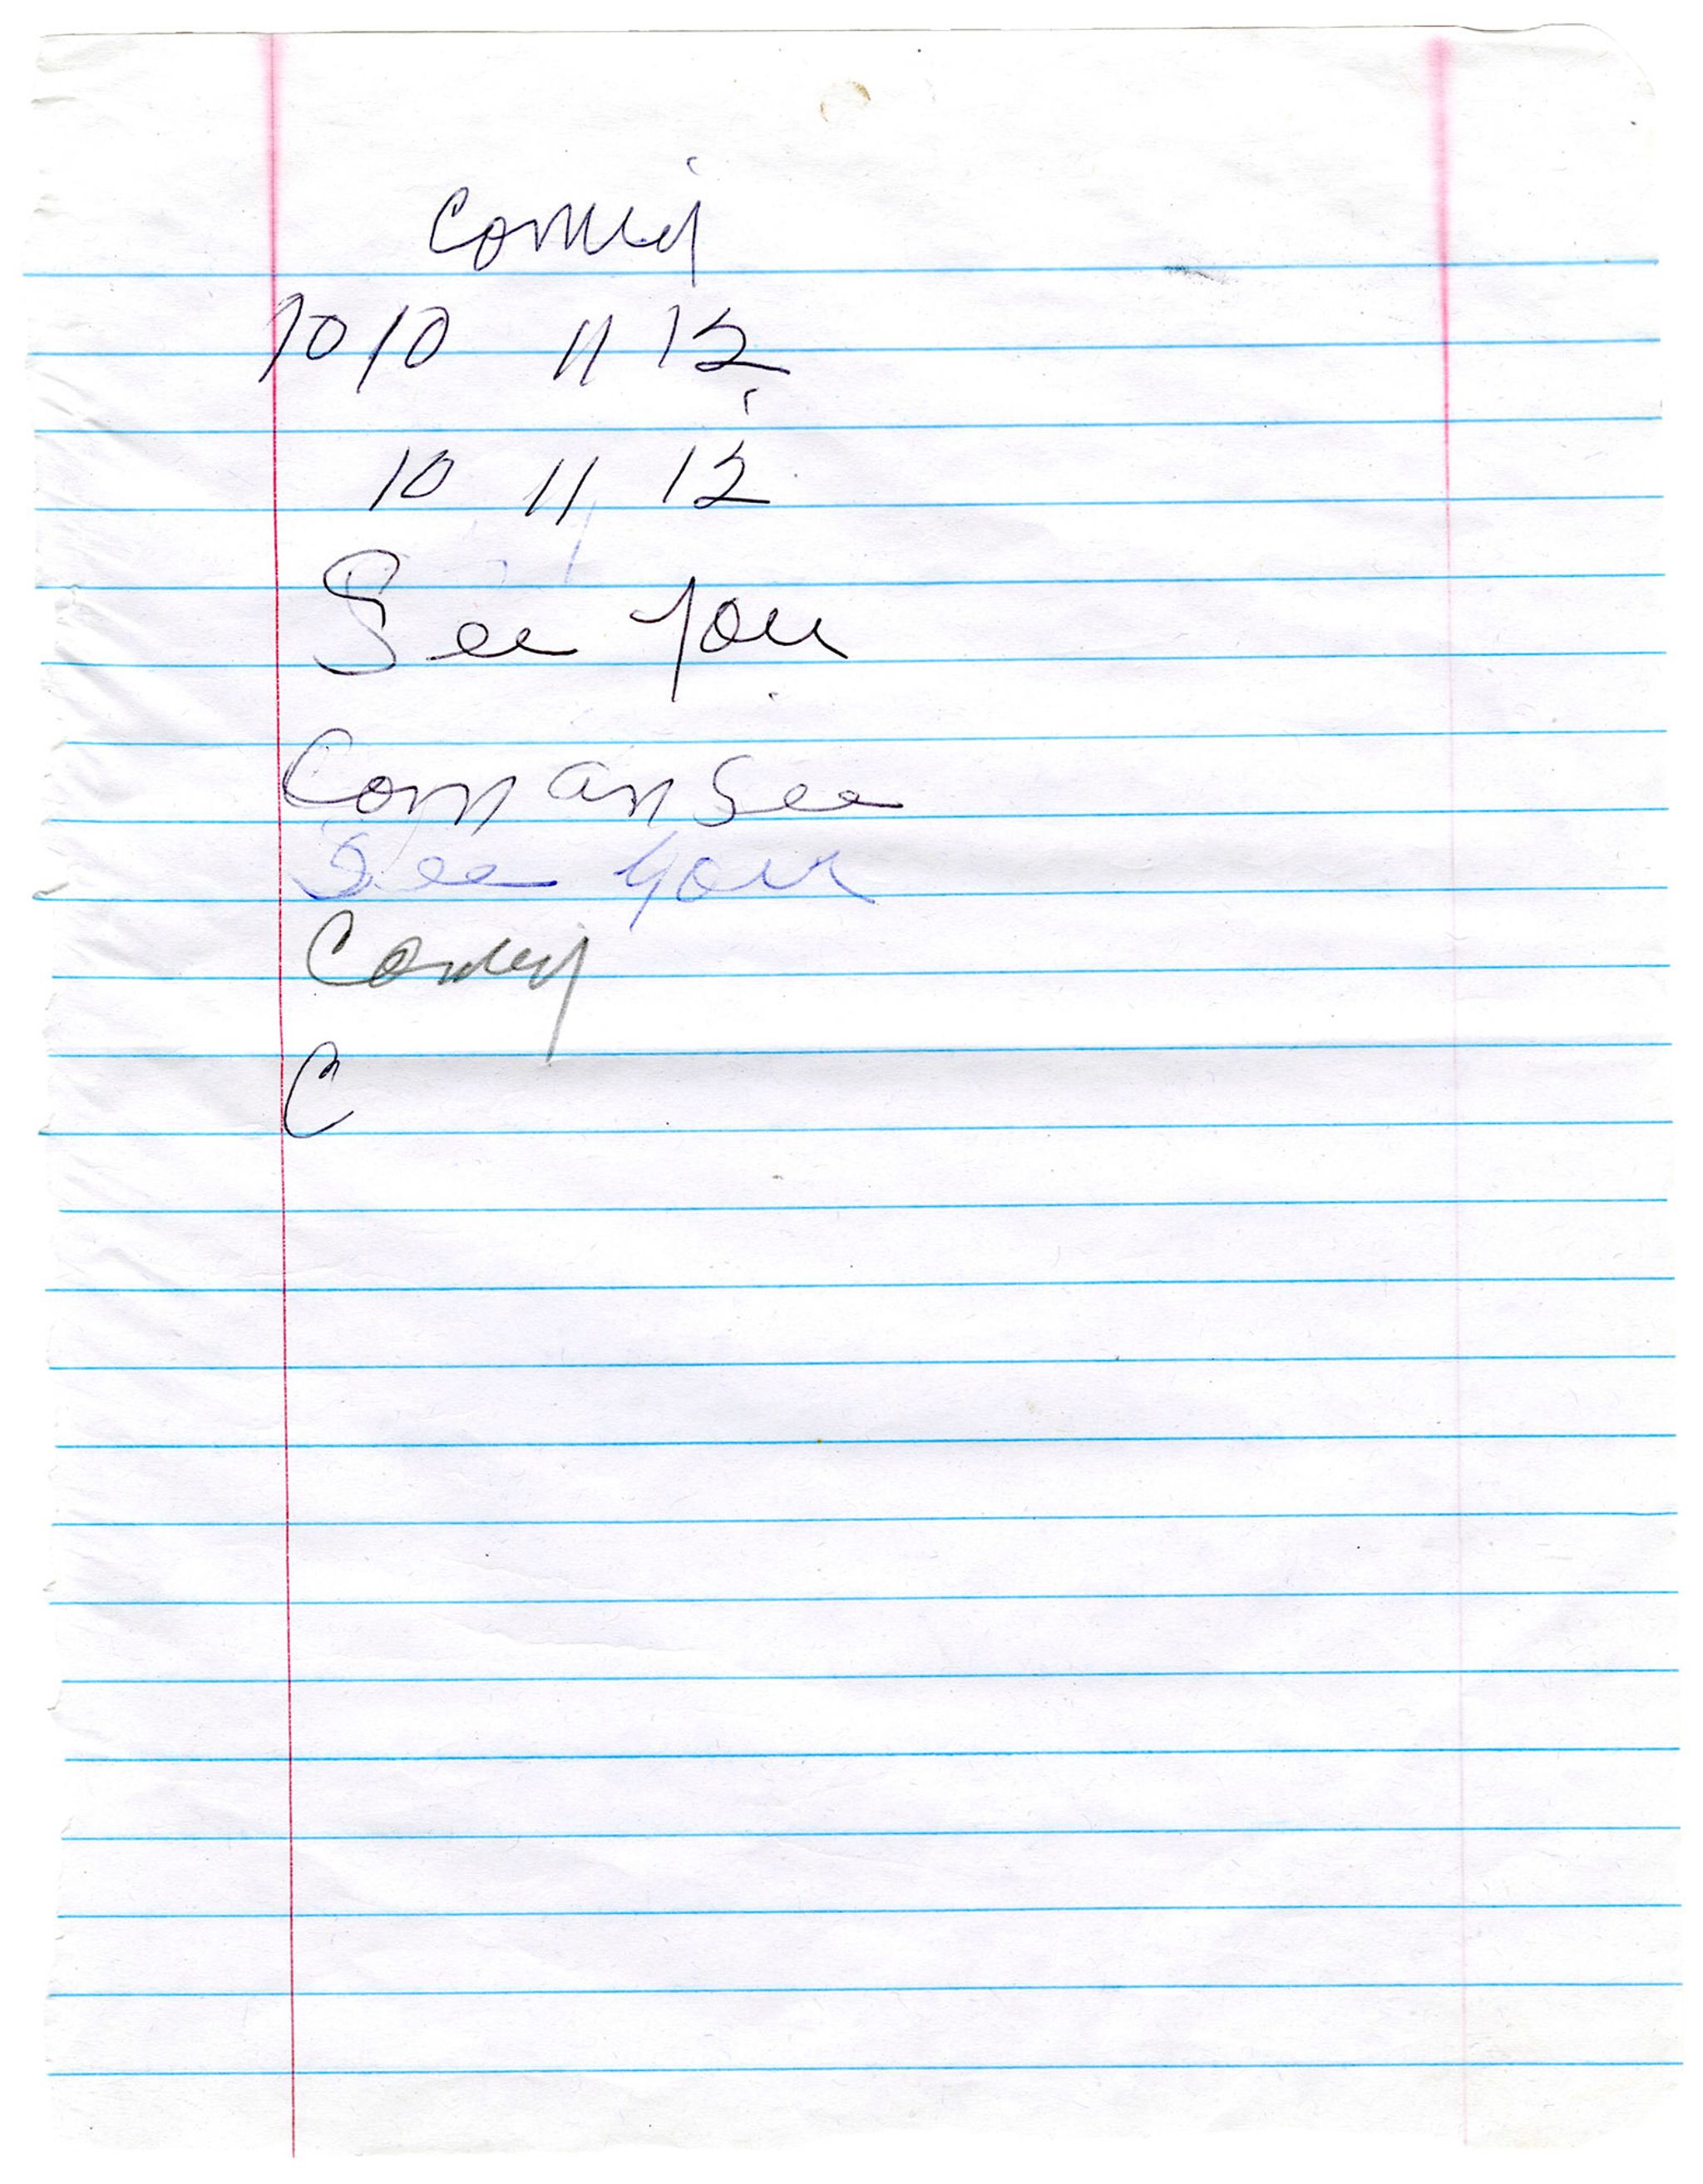 10 10 11 12
10 11 12
See you
Com an See
See you
C